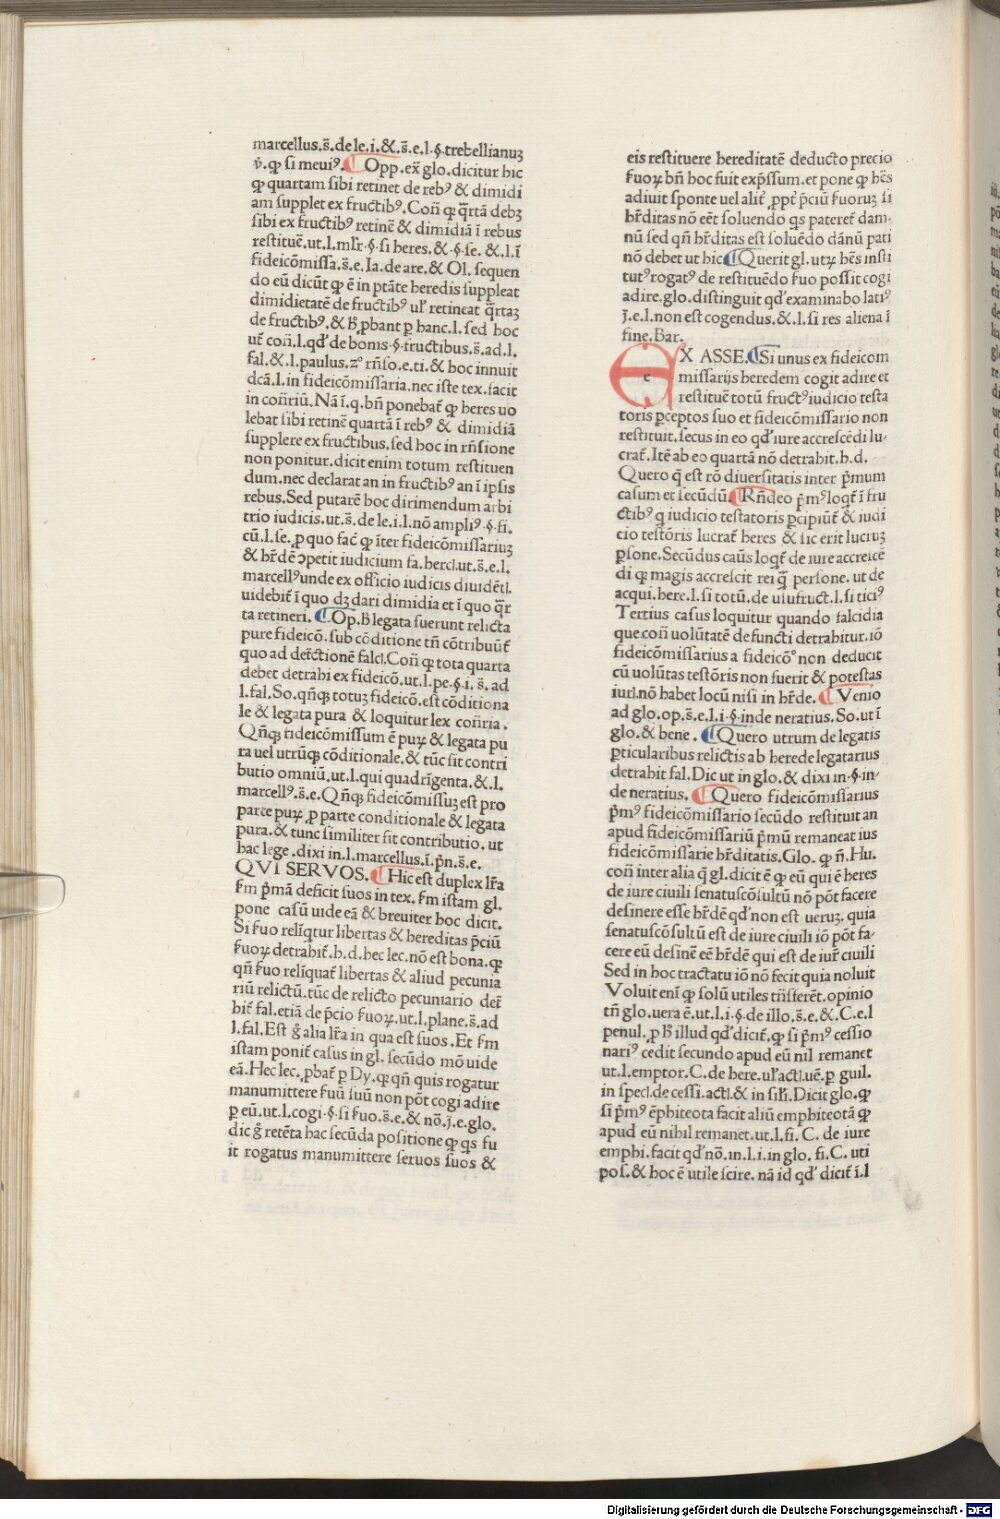 marcellus.s̄.de le.i.&.s̄.e.l.§.trebellianuꝫ
v̇.ꝙ si meuiꝰ.¶ Opp.ex̄ glo.dicitur hic
ꝙ quartam sibi retinet de rebꝰ & dimidi
am supplet ex fructibꝰ.Con̄ ꝙ q̄rtā debꝫ
sibi ex fructibꝰ retinē & dimidiā ī rebus
restituē.ut.l.mlr̄.§.si heres.&.§.se. &.l.ī
fideicōmissa.s̄.e.Ia.de are.& Ol. sequen
do eū dicūt ꝙ ē in ptāte heredis suppleat
dimidietatē de fructibꝰ ul' retineat q̄rtaꝫ
de fructibꝰ.& h̄.ꝓbant ꝑ hanc.l. sed hoc
ut̄ con̄.l.qđ de bonis.§.fructibus.s̄.ad.l.
fal.&.l.paulus.z.º rn̄so.e.ti.& hoc innuit
dc̄ā.l.in fideicōmissaria.nec iste tex.facit
in con̄riū. Nā ī.q.bn̄ ponebat̄ ꝙ heres uo
lebat sibi retinē quartā ī rebꝰ & dimidiā
supplere ex fructibus.sed hoc in rn̄sione
non ponitur.dicit enim totum restituen
dum.nec declarat an in fructibꝰ an ī ipsis
rebus.Sed putarē hoc dirimendum arbi
trio iudicis.ut.s̄.de le.i.l.nō ampliꝰ.§.fi.
cū.l.se.ꝓ quo fac̄ ꝙ īter fideicōmissariuꝫ
& hr̄dē ɔpetit iudicium fa.hercl.ut.s̄.e.l.
marcellꝰunde ex officio iudicis diuidēt̄.
uidebit̄ ī quo dꝫ dari dimidia et ī quo q̄r
ta retineri. ¶ Op.h̄ legata fuerunt relicta
pure fideicō.sub cōditione tn̄ cōtribuūt̄
quo ad detc̄tionē falc̄.Con̄ ꝙ tota quarta
debet detrahi ex fideicō.ut.l.pe.§.i. s̄. ad
l.fal.So.qn̄qꝫ totuꝫ fideicō.est cōditiona
le & legata pura & loquitur lex con̄ria.
Qn̄qꝫ fideicōmissum ē puꝝ & legata pu
ra uel utrūqꝫ cōditionale.& tūc fit contri
butio omniū.ut.l.qui quadrīgenta.&.l.
marcellꝰ.s̄.e.Qn̄qꝫ fideicōmissuꝫ est pro
parte puꝝ ꝓ parte conditionale & legata
pura.& tunc similiter fit contributio. ut
hac lege.dixi in.l.marcellus.ī.pn̄.s̄.e.
QVI SERVOS.¶ Hic est duplex lr̄a
ẜm pm̄ā deficit suos in tex. ẜm istam gl.
pone casū uide eā & breuiter hoc dicit.
Si ẜuo relīq̄tur libertas & hereditas p̄ciū
ẜuoꝝ detrahit̄.h.d.hec lec.nō est bona.ꝙ
qn̄ ẜuo relīquat̄ libertas & aliud pecunia
riū relictū.tūc de relicto pecuniario det̄
hit̄ fal.etiā de p̄cio ẜuoꝝ.ut.l.plane.s̄.ad
l.fal.Est ḡ alia lr̄a in qua est suos. Et ẜm
istam ponit̄ casus in gl. secūdo mō uide
eā.Hec lec.ꝓbat̄ ꝑ Dy.ꝙ qn̄ quis rogatur
manumittere ẜuū suū non pōt cogi adire
ꝑ eū.ut.l.cogi.§.si ẜuo.s̄.e.& nō.j̄.e.glo.
dic ḡ retēta hac secūda positione ꝙ qs fu
it rogatus manumittere seruos suos &
eis restituere hereditatē deducto precio
ẜuoꝝ bn̄ hoc fuit exp̄ssum.et pone ꝙ hēs
adiuit sponte uel alit̄ ,ppt̄ p̄ciū ẜuoruꝫ si
hr̄ditas nō eēt soluendo qs pateret̄ dam-
nū sed qn̄ hr̄ditas est soluēdo dānū pati
nō debet ut hic¶Querit gl.utꝝ hēs insti
tutꝰrogatꝰ de restituēdo ẜuo possit cogi
adire.glo.distinguit qđ examinabo latiꝰ
j̄.e.l.non est cogendus.&.l.si res aliena ī
fine.Bar.
EX ASSE.¶Si unus ex fideicom
missarijs heredem cogit adire et
restituē totū fructꝰiudicio testa
toris ꝑceptos suo et fideicōmissario non
restituit.secus in eo qđ iure accrescēdi lu-
crat̄.Itē ab eo quartā nō detrahit.h.d.
Quero q̄ est rō diuersitatis inter pm̄um
casum et secūdū.¶Rn̄deo pm̄ꝰloqt̄ ī fru
ctibꝰ q iudicio testatoris ꝑcipiūt̄ & iudi
cio testōris lucrat̄ heres & sic erit luciuꝫ
ꝑsone.Secūdus caūs loqt̄ de iure accrescē
di ꝙ magis accrescit rei q̄ persone.ut de
acqui.here.l.si totū.de usufruct.l.si ticiꝰ
Tertius casus loquitur quando falcidia
que con̄ uolūtatē defuncti detrahitur.iō
fideicōmissarius a fideicōº non deducit
cū uolūtas testōris non fuerit & potestas
iuri.nō habet locū nisi in hr̄de.¶ Venio
ad glo.op.s̄.e.l.i.§.inde neratius.So.ut ī
glo.& bene. ¶Quero utrum de legatis
ꝑticularibus relictis ab herede legatarius
detrahit fal.Dic ut in glo.& dixi in.§.in-
de neratius.¶Quero fideicōmissarius
pm̄ꝰ fideicōmissario secūdo restituit an
apud fideicōmissariū pm̄ū remaneat ius
fideicōmissarie hr̄ditatis.Glo. ꝙ n̄.Hu.
con̄ inter alia q̄ gl.dicit ē ꝙ eū qui ē heres
de iure ciuili senatuscōsultū nō pōt facere
desinere esse hr̄dē qđ non est ueruꝫ. quia
senatuscōsultū est de iure ciuili iō pōt fa-
cere eū desinē eē hr̄dē qui est de iur̄ ciuili
Sed in hoc tractatu iō nō fecit quia noluit
Voluit enī ꝙ solū utiles trn̄sferēt.opinio
tn̄ glo.uera ē.ut.l.i.§.de illo.s̄.e.& C.e.l
penul.ꝓ h̄ illud qđ dicit̄.ꝙ si pm̄ꝰ cessio
nariꝰ cedit secundo apud eū nil remanet
ut.l.emptor.C.de here.ul'actī.uē.ꝑ guil.
in specl.de cessi.actī.& in sil'i.Dicit glo.ꝙ
si pm̄ꝰ ēphiteota facit aliū emphiteotā ꝙ
apud eū nihil remanet.ut.l.fi. C. de iure
emphi.facit qđ nō.in.l.i.in glo. fi.C. uti
pos.& hoc ē utile scire. nā id qđ dicit̄ ī.l
Digitalisierung gefördert durch die Deutsche Forschungsgemeinschaft - DFG